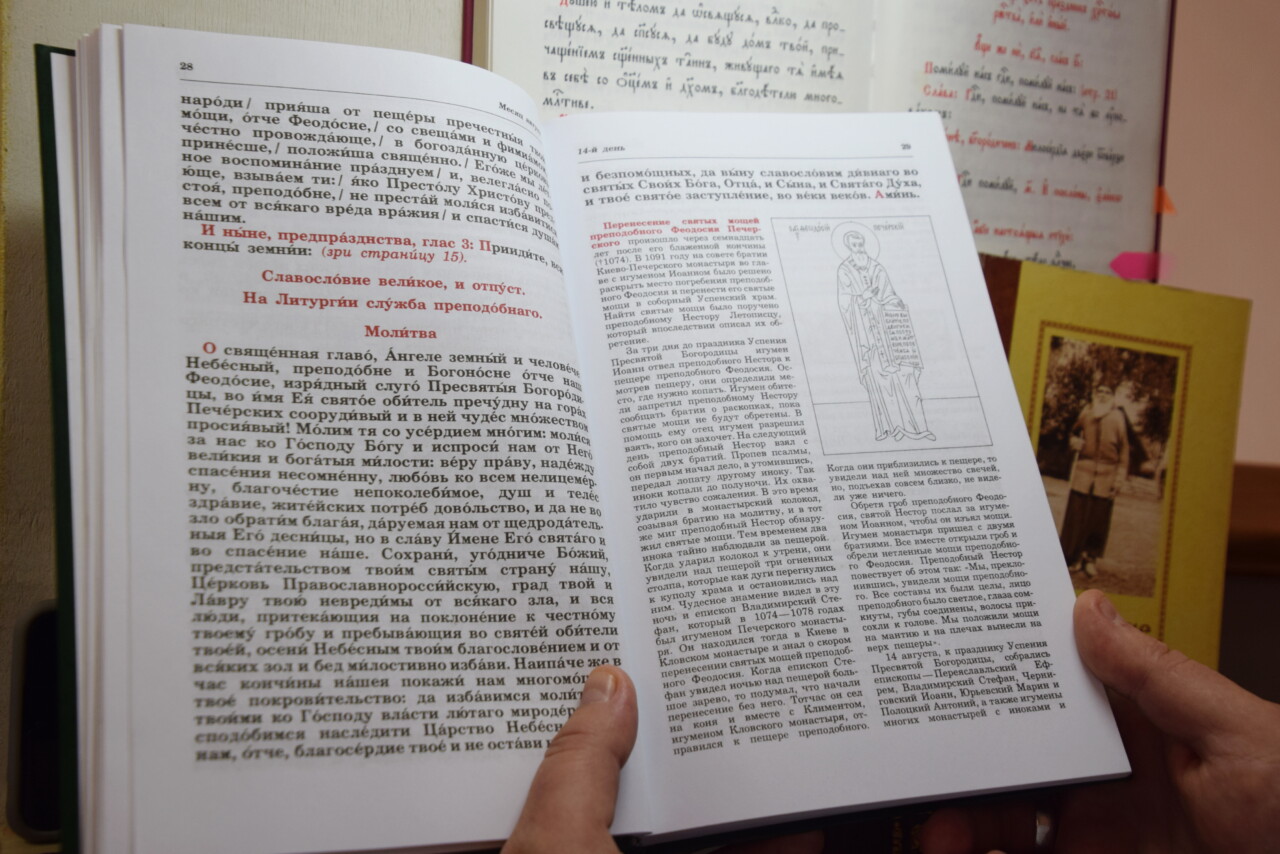 28
Месяц
наро́ди/ прия́ша от пеще́ры пречестны́я твоя́
мо́щи, о́тче Феодо́сие,/ со свеща́ми и фимиа́мом
че́стно провожда́юще,/ в богозда́нную це́рковь
прине́сше,/ положи́ша свяще́нно./ Его́же мы
ное воспомина́ние пра́зднуем/ и, велегла́сно
ю́ще, взыва́ем ти:/ я́ко Престо́лу Христо́ву пред-
стоя́, преподо́бне,/ не преста́й моля́ся изба́витися
всем от вся́каго вре́да вра́жия/ и спасти́ся душа́м
на́шим.
И ны́не, предпра́зднства, глас 3: Прииди́те, вси
концы́ земни́и: (зри страни́цу 15).
Славосло́вие вели́кое, и отпу́ст.
На Литурги́и слу́жба преподо́бнаго.
Моли́тва
О свяще́нная главо́, А́нгеле земны́й и челове́че
Небе́сный, преподо́бне и Богоно́сне о́тче наш
Феодо́сие, изря́дный слуго́ Пресвяты́я Богоро́ди-
цы, во и́мя Ея́ свято́е оби́тель пречу́дну на гора́х
Пече́рских сооруди́вый и в ней чуде́с мно́жеством
просия́вый! Мо́лим тя со усе́рдием мно́гим: моли́ся
за нас ко Го́споду Бо́гу и испроси́ нам от Него́
вели́кия и бога́тыя ми́лости: ве́ру пра́ву, наде́жду
спасе́ния несомне́нну, любо́вь ко всем нелицеме́р-
ну, благоче́стие непоколеби́мое, душ и теле́с
здра́вие, жите́йских потре́б дово́льство, и да не во
зло обрати́м блага́я, да́руемая нам от щедрода́тель-
ныя Его́ десни́цы, но в сла́ву И́мене Его́ свята́го и
во спасе́ние на́ше. Сохрани́, уго́дниче Бо́жий,
предста́тельством твои́м святы́м страну́ на́шу,
Це́рковь Правосла́внороссийскую, град твой и
Ла́вру твою́ невреди́мы от вся́каго зла, и вся
лю́ди, притека́ющия на поклоне́ние к честно́му
твоему́ гро́бу и пребыва́ющия во святе́й оби́тели
твое́й, осени́ Небе́сным твои́м благослове́нием и от
вся́ких зол и бед ми́лостивно изба́ви. Наипа́че же в
час кончи́ны на́шея покажи́ нам многомо́щное
твое́ покрови́тельство: да изба́вимся моли́твами
твои́ми ко Го́споду вла́сти лю́таго миродержи́теля
сподо́бимся насле́дити Ца́рство Небе́сное.
нам, о́тче, благосе́рдие твое́ и не оста́ви
14-й день
29
и безпомо́щных, да вы́ну славосло́вим ди́внаго во
святы́х Свои́х Бо́га, Отца́, и Сы́на, и Свята́го Ду́ха,
и твое́ свято́е заступле́ние, во ве́ки веко́в. Ами́нь.
Перенесение святых мощей
преподобного Феодосия Печер-
ского произошло через семнадцать
лет после его блаженной кончины
(†1074). В 1091 году на совете братии
Киево-Печерского монастыря во гла-
ве с игуменом Иоанном было решено
раскрыть место погребения преподоб-
ного Феодосия и перенести его святые
мощи в соборный Успенский храм.
Найти святые мощи было поручено
преподобному Нестору Летописцу,
который впоследствии описал их об-
ретение.
За три дня до праздника Успения
Пресвятой Богородицы игумен
Иоанн отвел преподобного Нестора к
пещере преподобного Феодосия. Ос-
мотрев пещеру, они определили ме-
сто, где нужно копать. Игумен обите-
ли запретил преподобному Нестору
сообщать братии о раскопках, пока
святые мощи не будут обретены. В
помощь ему отец игумен разрешил
взять, кого он захочет. На следующий
день преподобный Нестор взял с
собой двух братий. Пропев псалмы,
он первым начал дело, а утомившись,
передал лопату другому иноку. Так
иноки копали до полуночи. Их охва-
тило чувство сожаления. В это время
ударили в монастырский колокол,
созывая братию на молитву, и в тот
же миг преподобный Нестор обнару-
жил святые мощи. Тем временем два
инока тайно наблюдали за пещерой.
Когда ударил колокол к утрени, они
увидели над пещерой три огненных
столпа, которые как дуги перегнулись
к куполу храма и остановились над
ним. Чудесное знамение видел в эту
ночь и епископ Владимирский Сте-
фан, который в 1074—1078 годах
был игуменом Печерского монасты-
ря. Он находился тогда в Киеве в
Кловском монастыре и знал о скором
перенесении святых мощей преподоб-
ного Феодосия. Когда епископ Сте-
фан увидел ночью над пещерой боль-
шое зарево, то подумал, что начали
перенесение без него. Тотчас он сел
на коня и вместе с Климентом,
игуменом Кловского монастыря, от-
правился к пещере преподобного.
Когда они приблизились к пещере, то
увидели над ней множество свечей,
но, подъехав совсем близко, не виде-
ли уже ничего.
Обретя гроб преподобного Феодо-
сия, святой Нестор послал за игуме-
ном Иоанном, чтобы он изъял мощи.
Игумен монастыря пришел с двумя
братиями. Все вместе открыли гроб и
обрели нетленные мощи преподобно-
го Феодосия. Преподобный Нестор
повествует об этом так: «Мы, прекло-
нившись, увидели мощи преподобно-
го. Все составы их были целы, лицо
преподобного было светлое, глаза сом-
кнуты, губы соединены, волосы при-
сохли к голове. Мы положили мощи
на мантию и на плечах вынесли на
верх пещеры».
14 августа, к празднику Успения
Пресвятой Богородицы, собрались
епископы — Переяславский Еф-
рем, Владимирский Стефан, Черни-
говский Иоанн, Юрьевский Марин и
Полоцкий Антоний, а также игумены
многих монастырей с иноками и